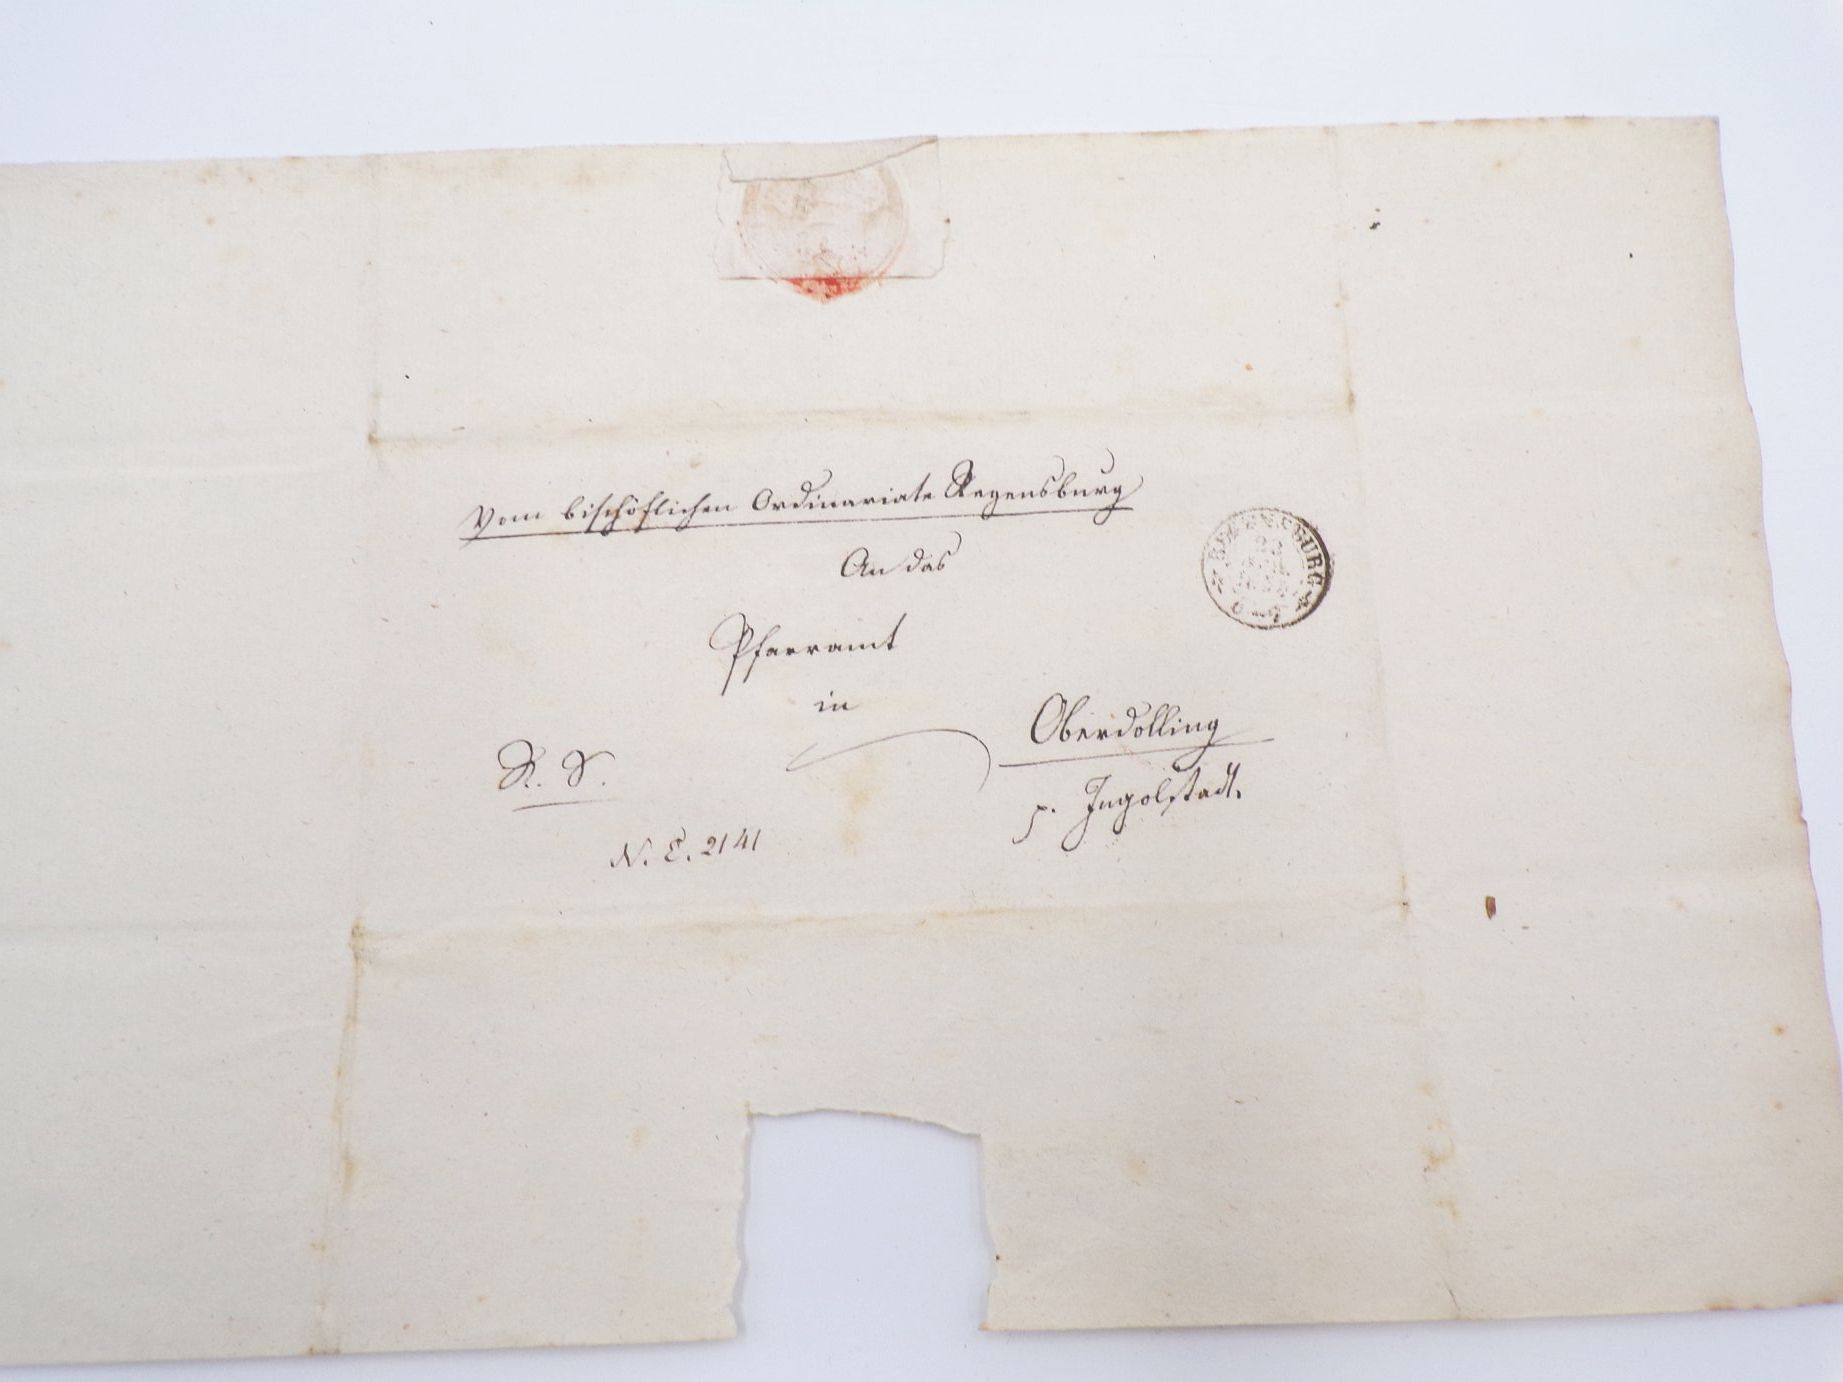 Vom bischöflichen Ordinariate Regensburg
An das
Pfarramt
in
Oberdolling
p. Ingolstadt.
R. S.
N. E. 2141
REGENSBURG